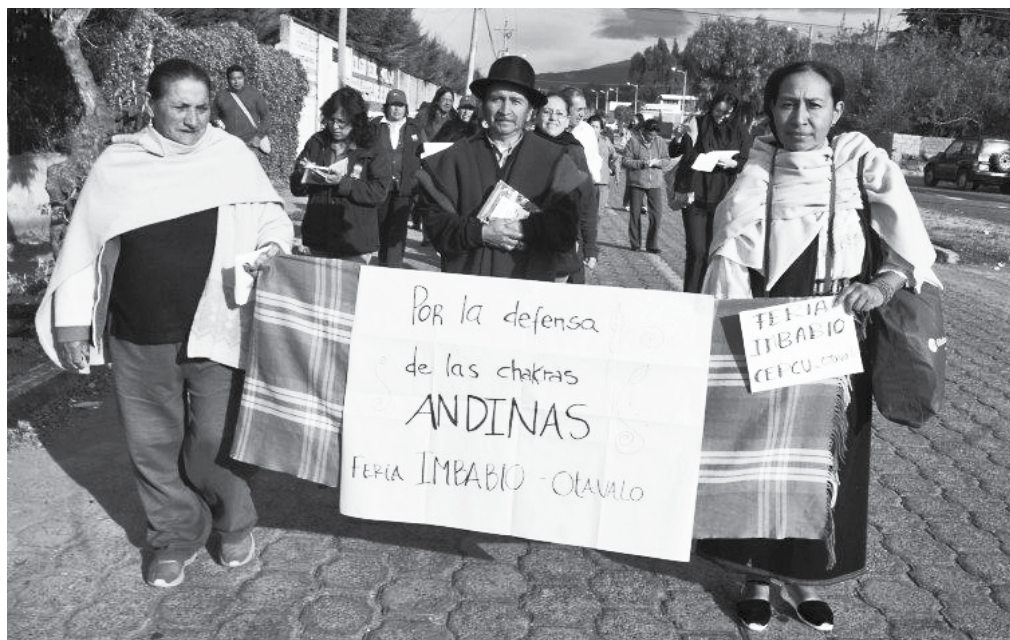 Por la defensa
de las chakras
ANDINAS
FERIA IMBABIO - OTAVALO
FERIA
IMBABIO
CEPCU